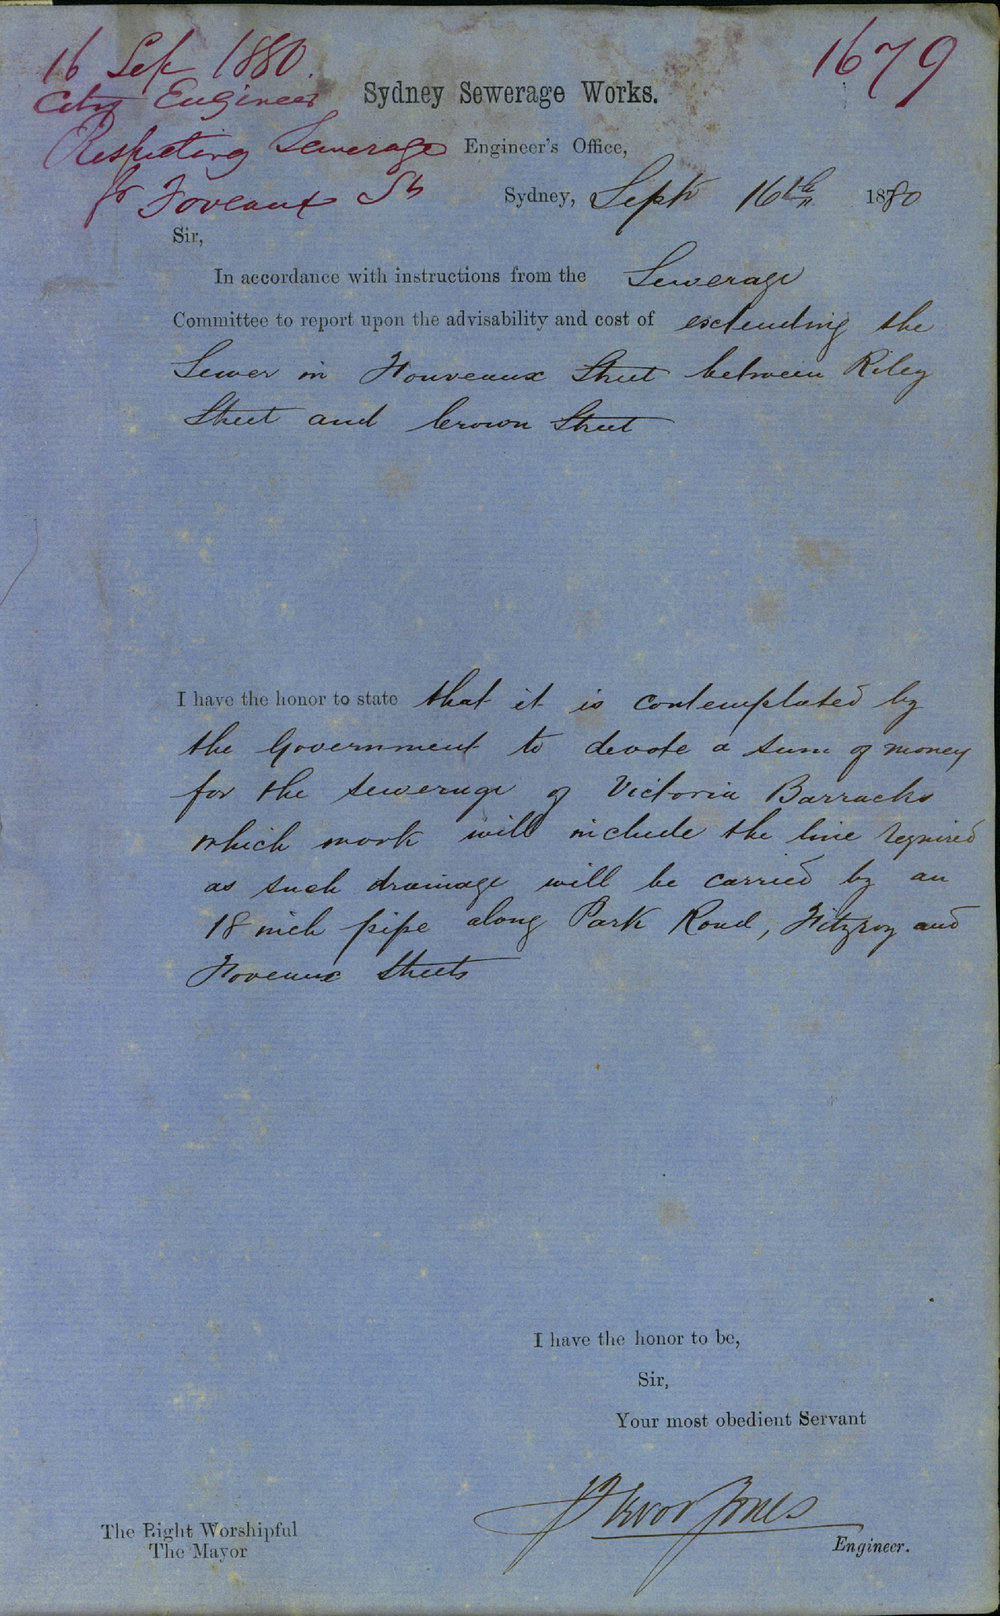 16 Sep 1880.
1679
City Engineer
Sydney Sewerage Works.
Respecting Sewerage
Engineer's Office,
for Foveaux St
Sydney, Sept 16th 1880
Sir,
In accordance with instructions from the Sewerage
Committee to report upon the advisability and cost of extending the
Sewer in Fouveaux Street between Riley
Street and Crown Street
I have the honor to state that it is contemplated by
the Government to devote a sum of money
for the sewerage of Victoria Barracks
which work will include the line required
as such drainage will be carried by an
18 inch pipe along Park Road, Fitzroy and
Foveaux Streets
I have the honor to be,
Sir,
Your most obedient Servant
Trevor Jones
Engineer.
The Right Worshipful
The Mayor